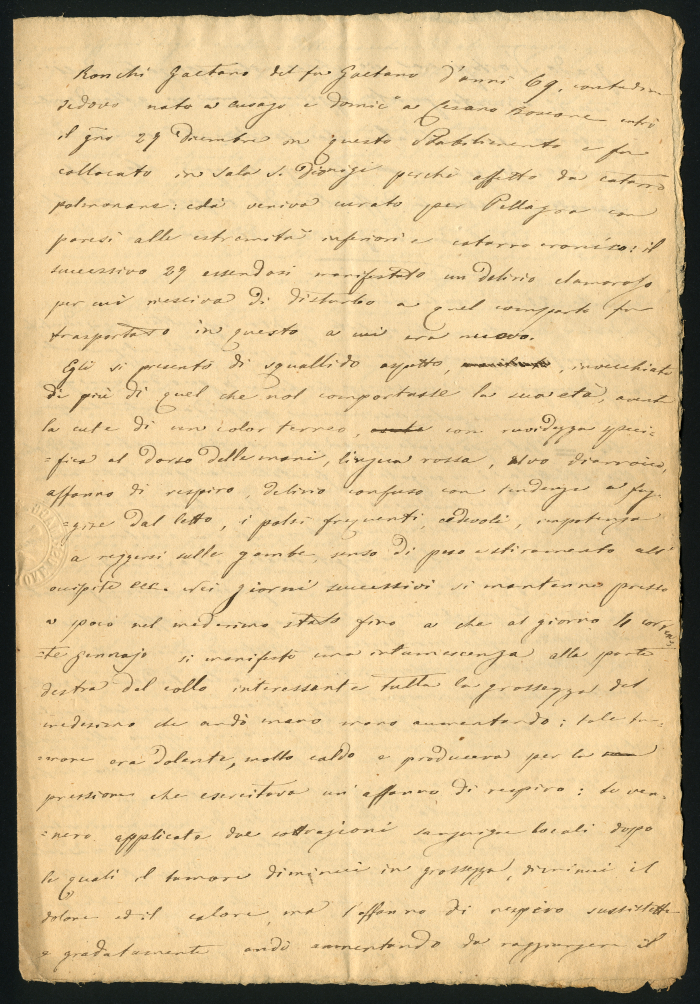 Ronchi Gaetano del fu Gaetano d'anni 69, contadino
vedovo nato a Cusago e domic.o a Cesano Boscone entrò
il gno 27 Dicembre in questo Stabilimento e fu
collocato in sala S. Dionigi perchè affetto da catarro
polmonare: colà veniva curato per Pellagra con
paresi alle estremità inferiori e catarro cronico: il
successivo 29 essendosi manifestato un delirio clamoroso
per cui riesciva di disturbo a quel comparto fu
trasportato in questo a cui era nuovo.
Egli si presentò di squallido aspetto, invecchiato
di più di quel che nol comportasse la sua età, avente
la cute di un color terreo, con ruvidezza speci-
=fica al dorso delle mani, lingua rossa, alvo diarroico,
affanno di respiro, delirio confuso con tendenza a fug-
=gire dal letto, i polsi frequenti, cedevoli, impotenza
a reggersi sulle gambe, senso di peso e stiramento all'
occipite ecc. Nei giorni successivi si mantenne presso
a poco nel medesimo stato fino a che al giorno 4 corren
=te gennajo si manifestò una intumescenza alla parte
destra del collo interessante tutta la grossezza del
medesimo che andò mano mano aumentando: tale tu-
=more era dolente, molto caldo e produceva per la
pressione che esercitava un affanno di respiro: le ven-
=nero applicate due sottrazioni sanguigne locali dopo
le quali il tumore diminuì in grossezza, diminuì il
dolore ed il calore, ma l'affanno di respiro sussistette
e gradatamente andò aumentando da raggiungere il